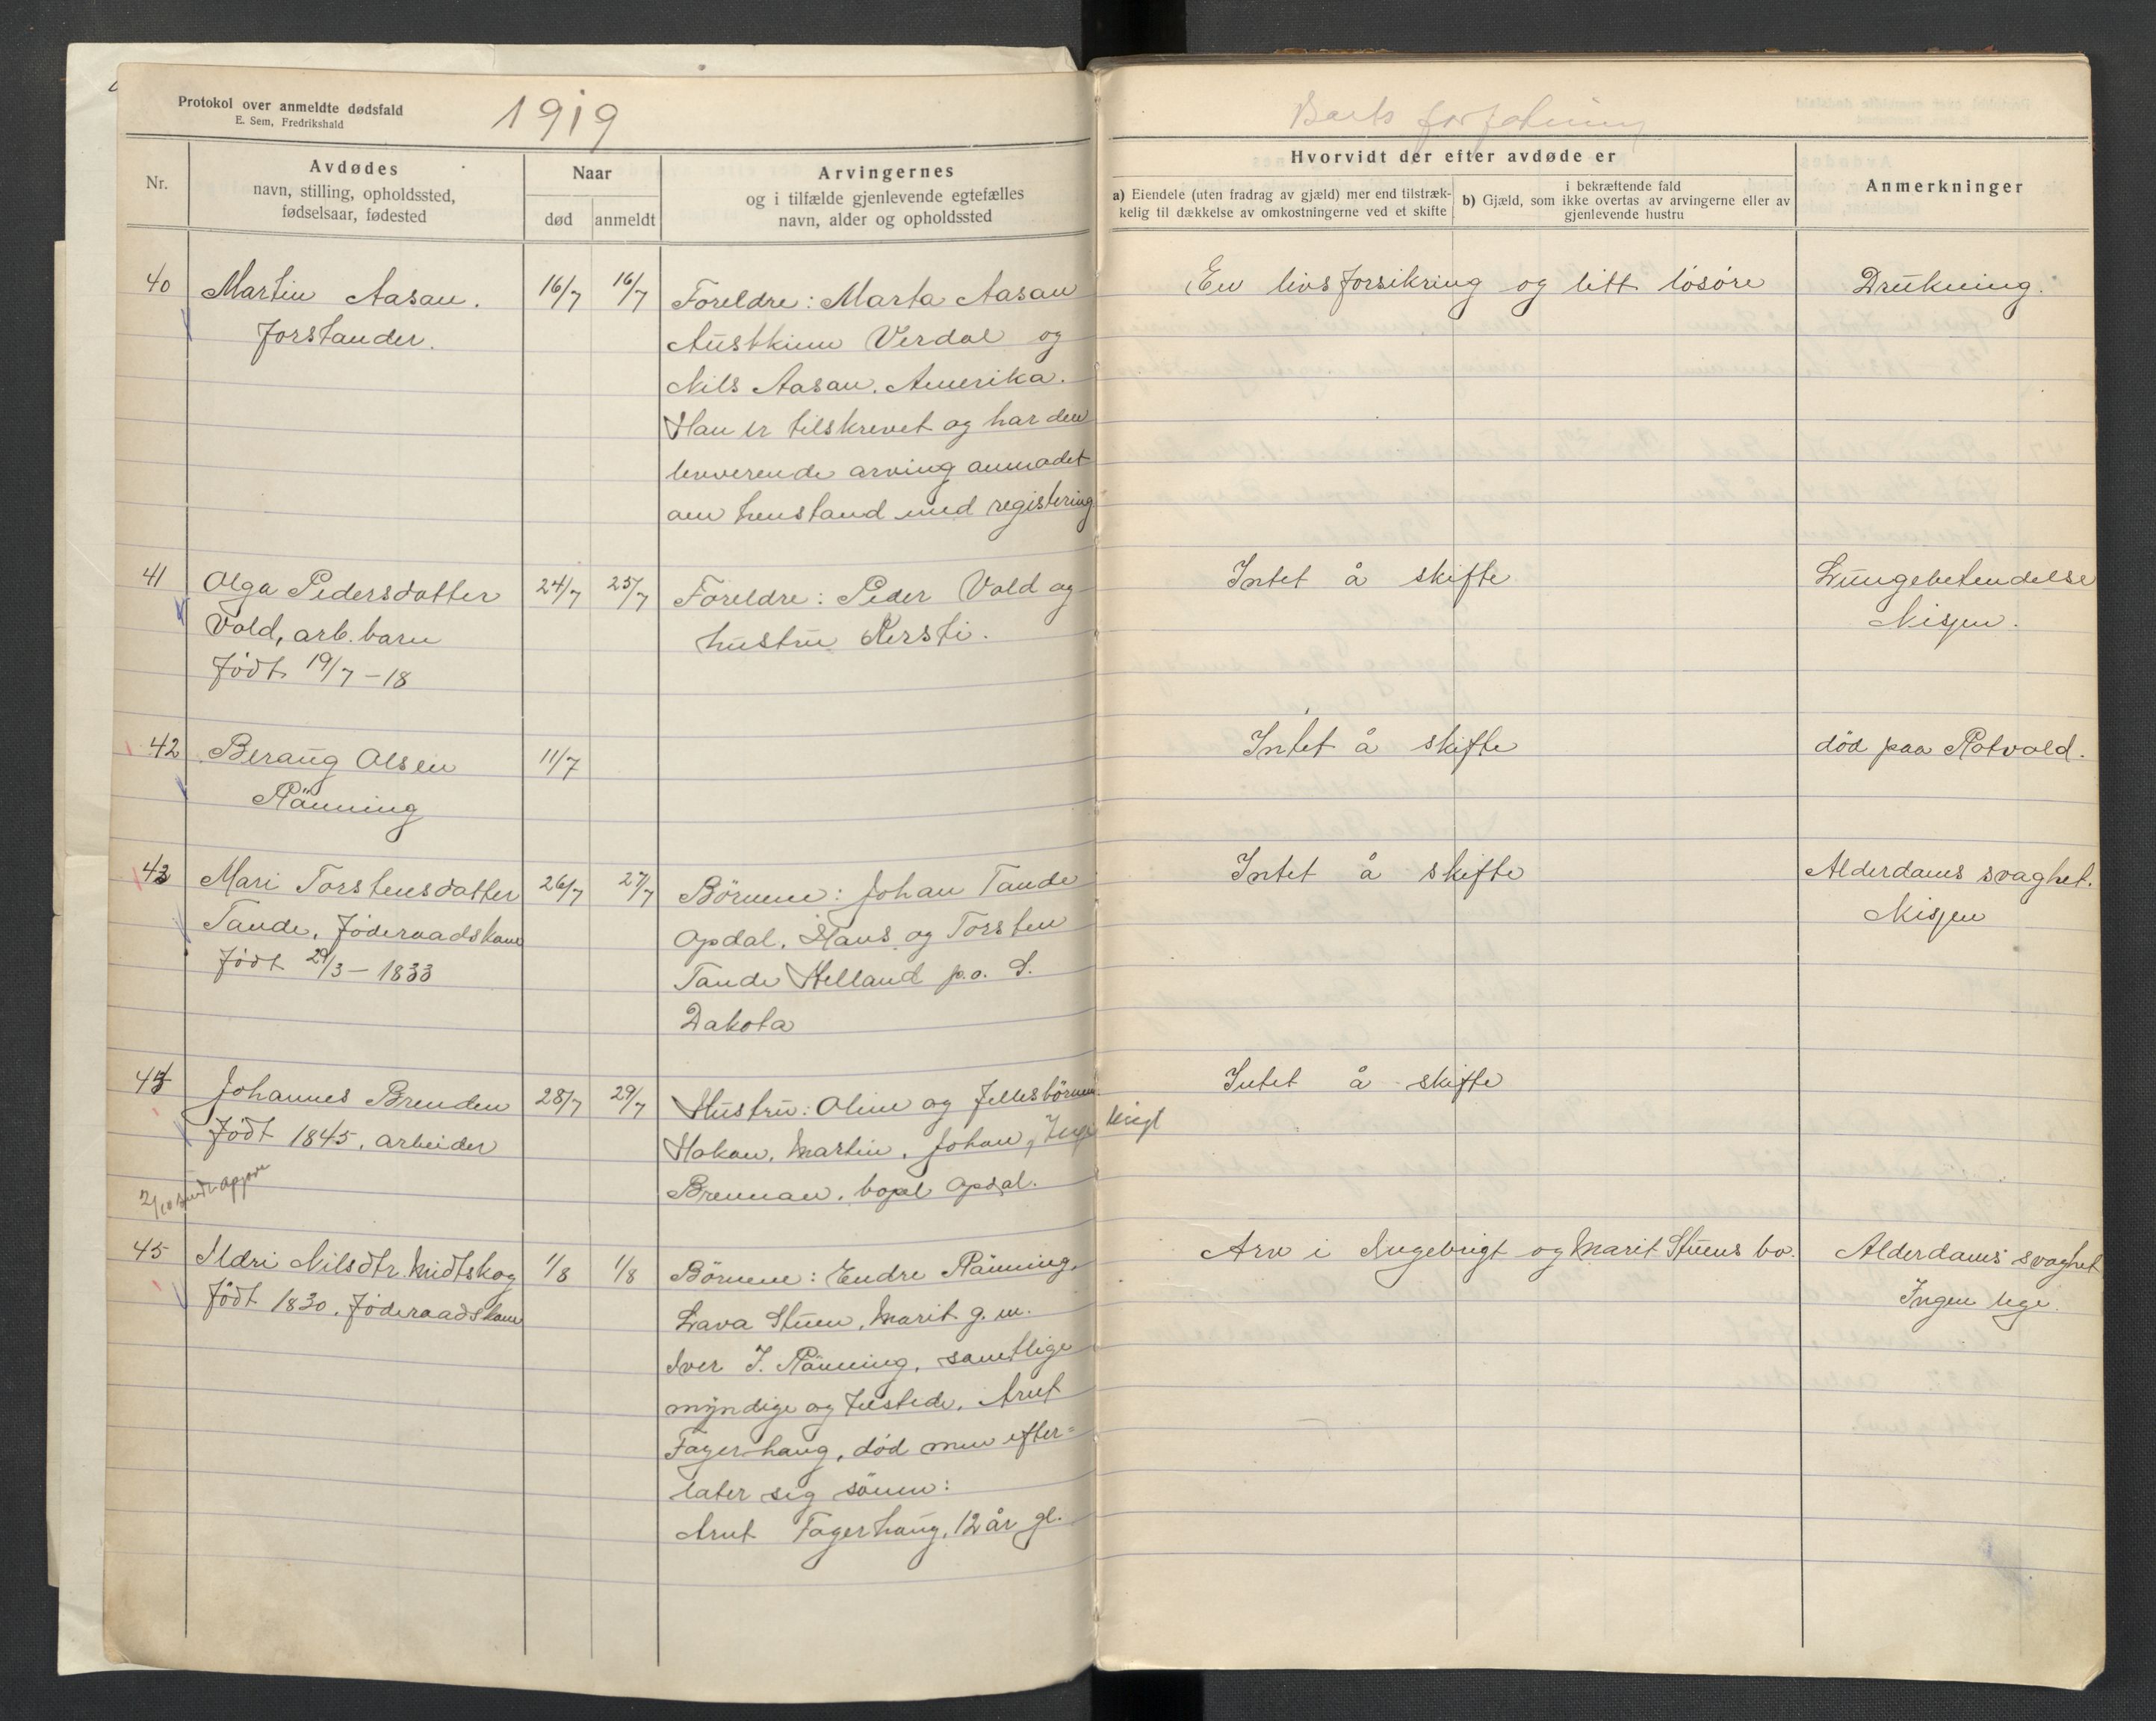 Protokol over anmeldte dødsfald
E. Sem, Fredrikshald
1919
Nr.
Avdødes
navn, stilling, opholdssted,
fødselsaar, fødested
Naar
død
anmeldt
Arvingernes
og i tilfælde gjenlevende egtefælles
navn, alder og opholdssted
Hvorvidt der efter avdøde er
a) Eiendele (uten fradrag av gjæld) mer end tilstræk-
kelig til dækkelse av omkostningerne ved et skifte
i bekræftende fald
b) Gjæld, som ikke overtas av arvingerne eller av
gjenlevende hustru
Anmerkninger
40
Martin Aasan.
Forstander.
16/7
16/7
Foreldre: Marta Aasan
Austkinn Verdal og
Nils Aasan. Amerika.
Han er tilskrevet og har den
levverende arving anmodet
om henstand med registering
En livsforsikring og litt lösöre
Drukning.
41
Olga Pedersdatter
Vold, arb. barn
Födt 19/7 - 18
24/7
25/7
Foreldre: Peder Vold og
hustru Kersti.
Intet å skifte
Lungebetendelse
Nisjen.
42
Beraug Olsen
Rönning
11/7
Intet å skifte
död paa Rotvold.
43
Mari Torstensdatter
Tande, Föderaadskone
Födt 29/3 - 1833
26/7
27/7
Börnene: Johan Tande
Opdal, Hans og Torsten
Tande Helland p.o. S.
Dakota
Intet å skifte
Alderdoms svaghet.
Nisjen
44
Johannes Brenden
Födt 1845. arbeider
28/7
29/7
Hustru: Oline og fellesbörnene
Hakon, Martin, Johan, Ingebrigt
Brennan, bopel Opdal.
Intet å skifte
2/10 sendt opgjøre
45
Aldri Nilsdtr. Midtskog
Födt 1830. Föderaadskone
1/8
1/8
Börnene: Endre Rönning,
Lava Stuen, Marit g. m.
Iver I. Rönning, samtlige
myndige og tilstede. Arnt
Fagerhaug, död men efter=
later sig sönnen:
Arnt Fagerhaug, 12 år gl.
Arv i Ingebrigt og Marit Stuens bo.
Alderdoms svaghet
Ingen lege.